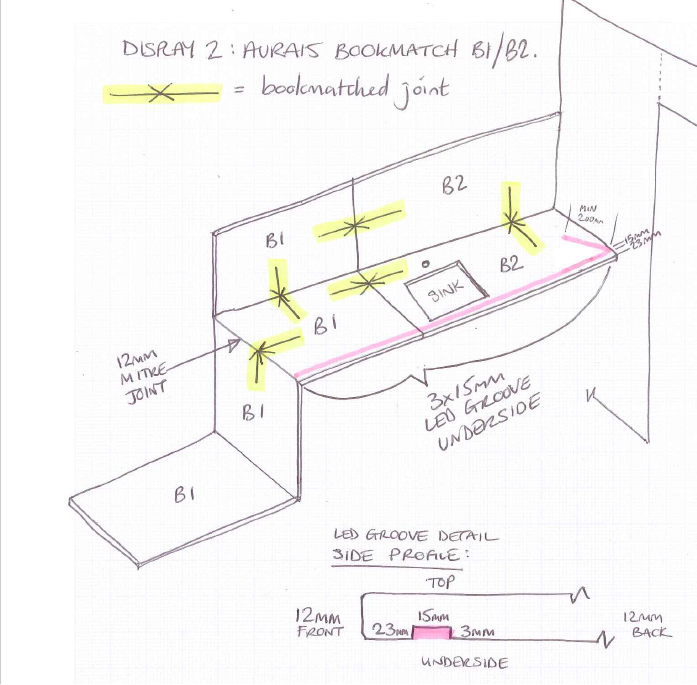 DISPLAY 2: AURAIS BOOKMATCH B1/B2.
= bookmatched joint
B2
B1
MIN
200mm
15mm
23mm
B2
SINK
B1
12MM
MITRE
JOINT
B1
3x15MM
LED GROOVE
UNDERSIDE
B1
LED GROOVE DETAIL
SIDE PROFILE:
TOP
12MM
FRONT
15MM
23mm
3MM
12MM
BACK
UNDERSIDE